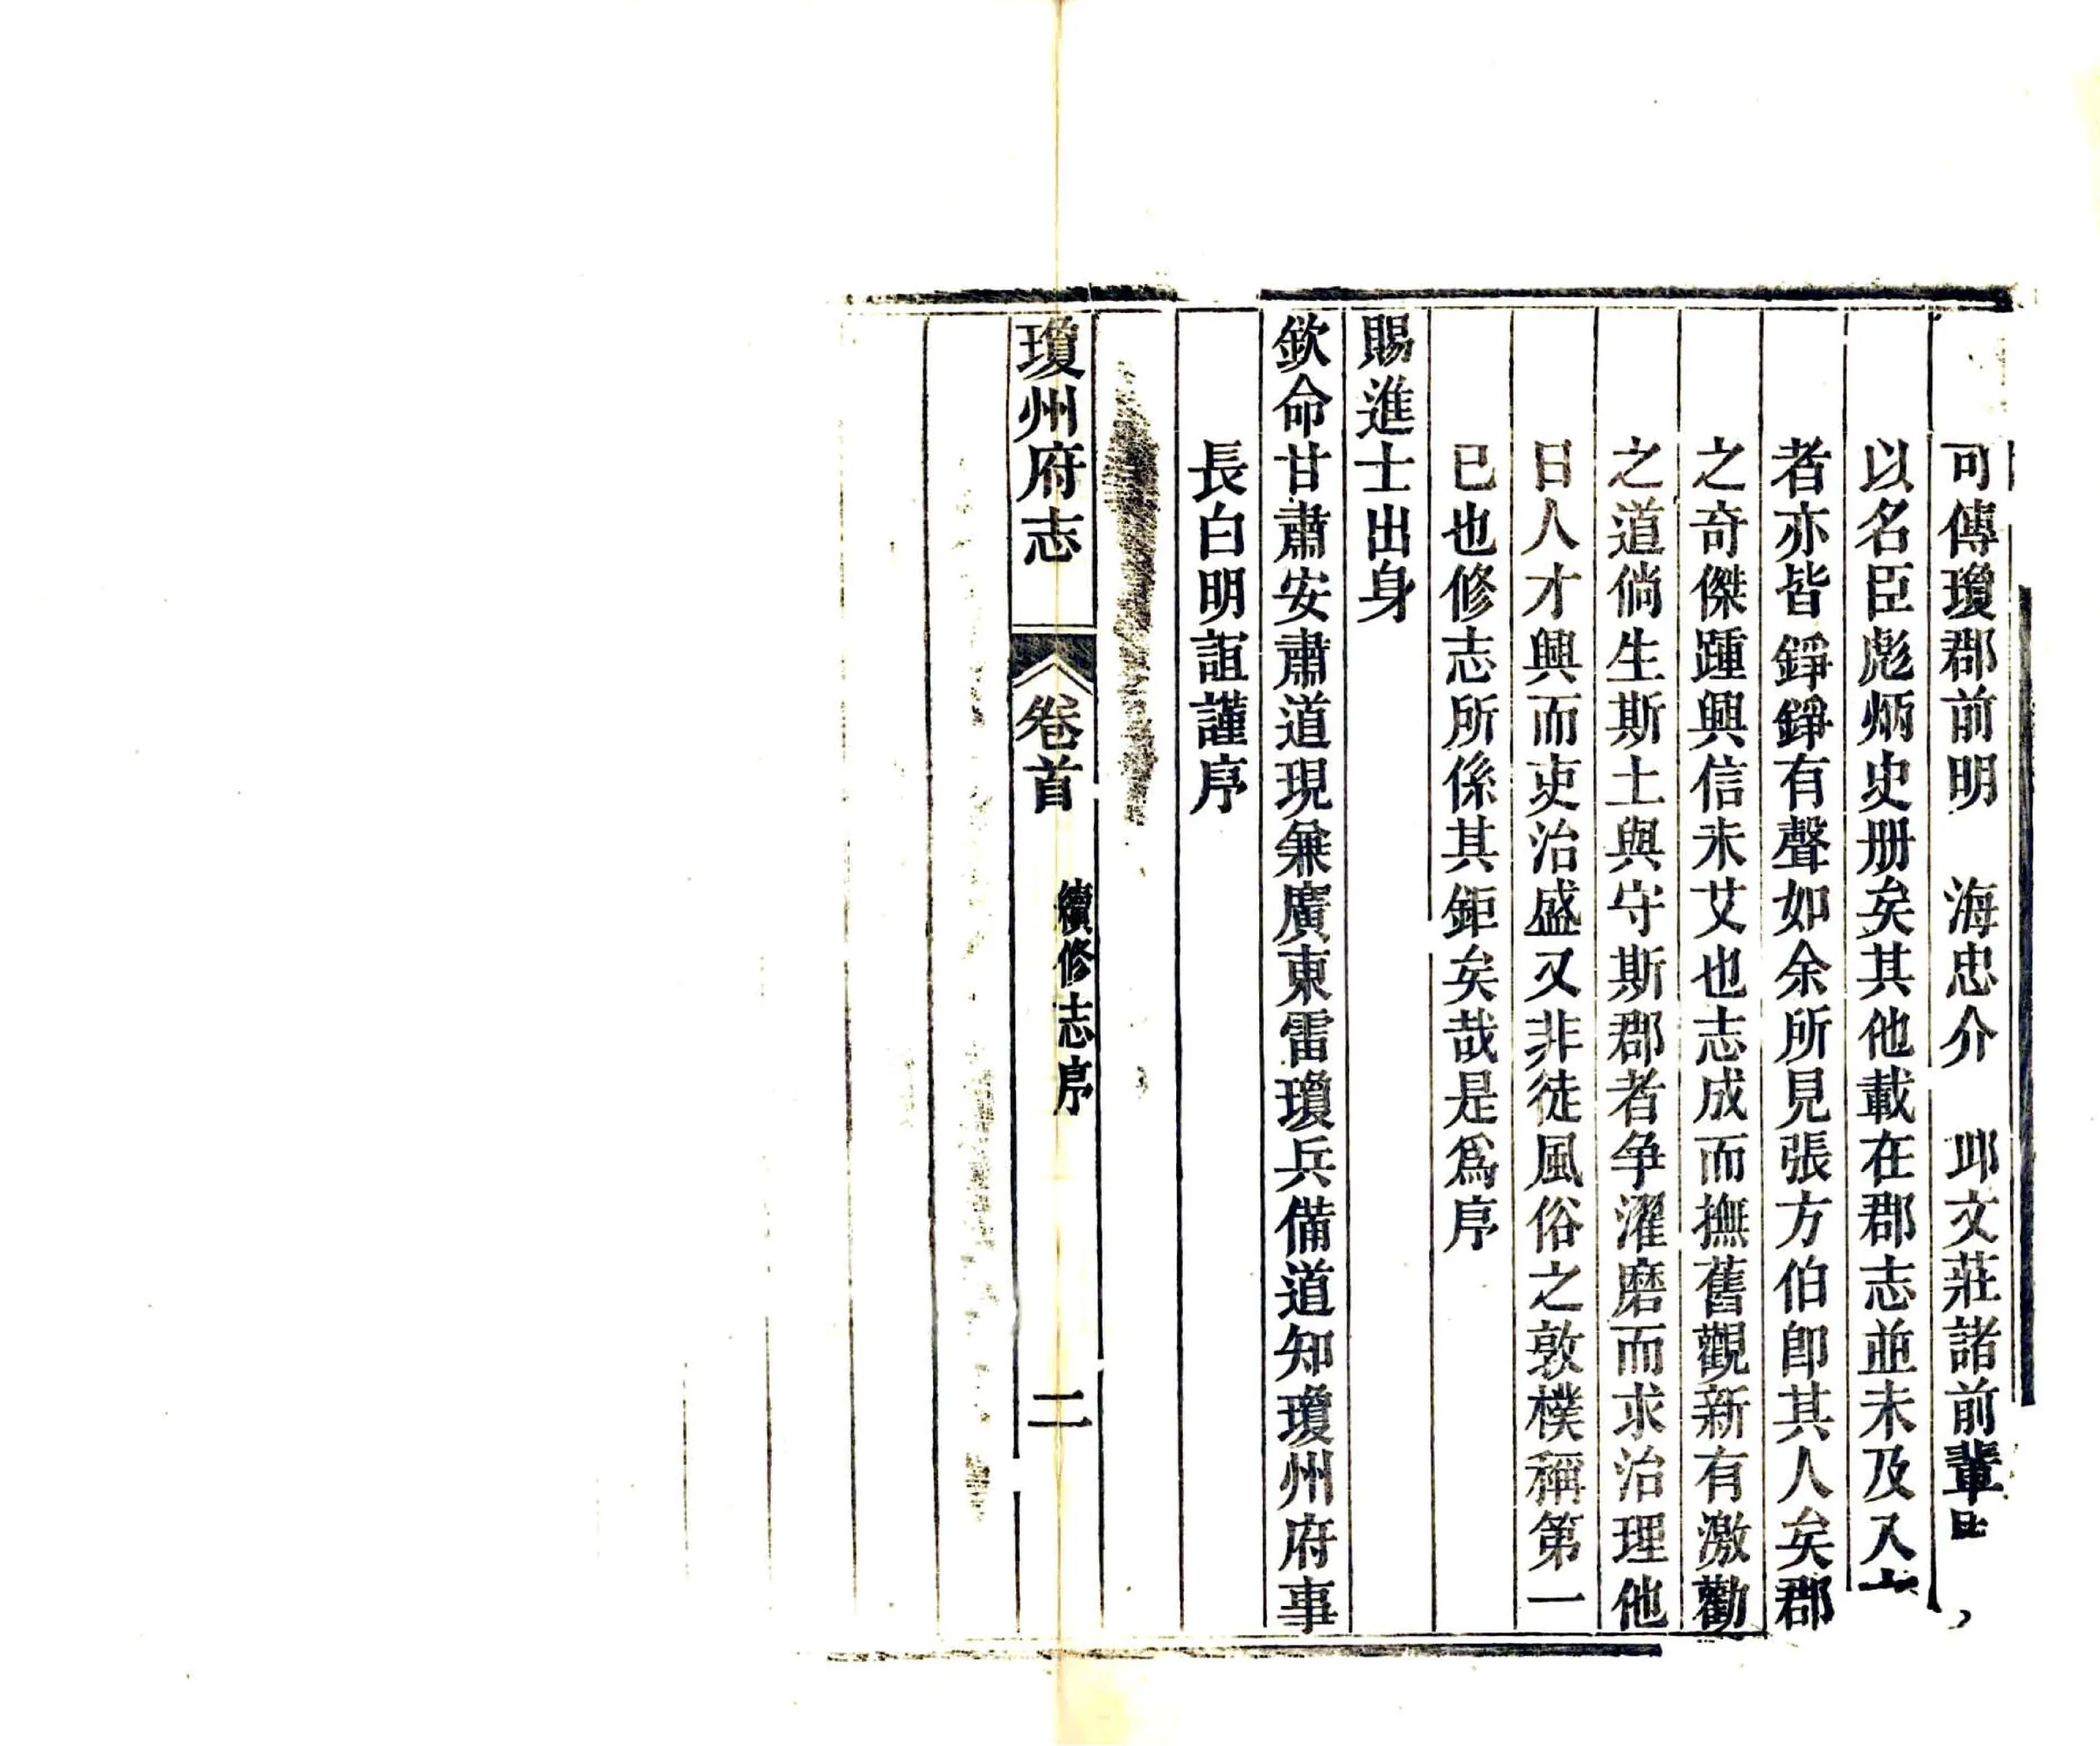 可傳瓊郡前明　海忠介　邱文莊諸前輩
以名臣彪炳史册矣其他載在郡志並未及入
者亦皆錚錚有聲如余所見張方伯卽其人矣郡
之奇傑踵興信未艾也志成而撫舊觀新有激勸
之道倘生斯土與守斯郡者争濯磨而求治理他
日人才興而吏治盛又非徒風俗之敦樸稱第一
已也修志所係其鉅矣哉是爲序
賜進士出身
欽命甘肅安肅道現兼廣東雷瓊兵備道知瓊州府事
長白明誼謹序
瓊州府志　卷首　續修志序　二